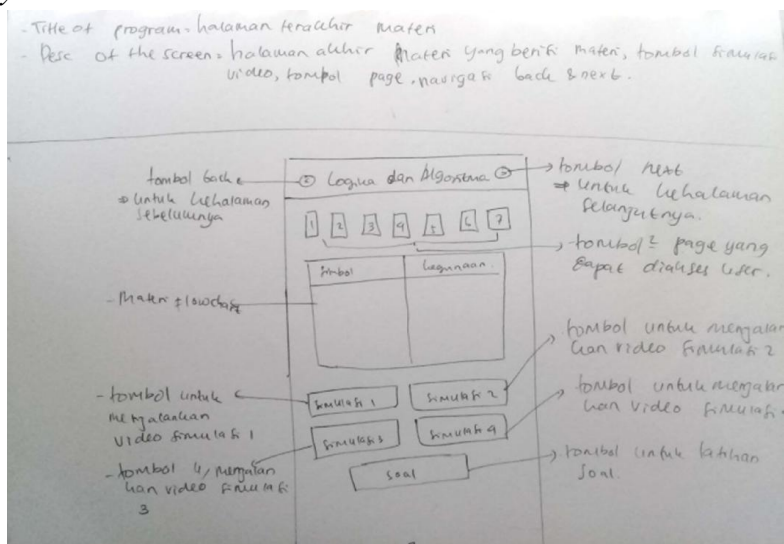 - Title of program : halaman terakhir materi
- Desc of the screen : halaman akhir materi yang berisi materi, tombol simulasi
video, tombol page, navigasi back & next.
tombol back
⇒ untuk kehalaman
sebelumnya
Logika dan Algoritma
tombol next
⇒ untuk kehalaman
selanjutnya.
1 2 3 4 5 6 7
tombol² page yang
dapat diakses user.
Simbol
kegunaan
- Materi flowchart
tombol untuk menjalan
kan video simulasi 2
- tombol untuk
menjalankan
video simulasi 1
simulasi 1
simulasi 2
tombol untuk menjalan
kan video simulasi
simulasi 3
simulasi 4
- tombol u/ menjalan
kan video simulasi
3
soal
tombol untuk latihan
soal.